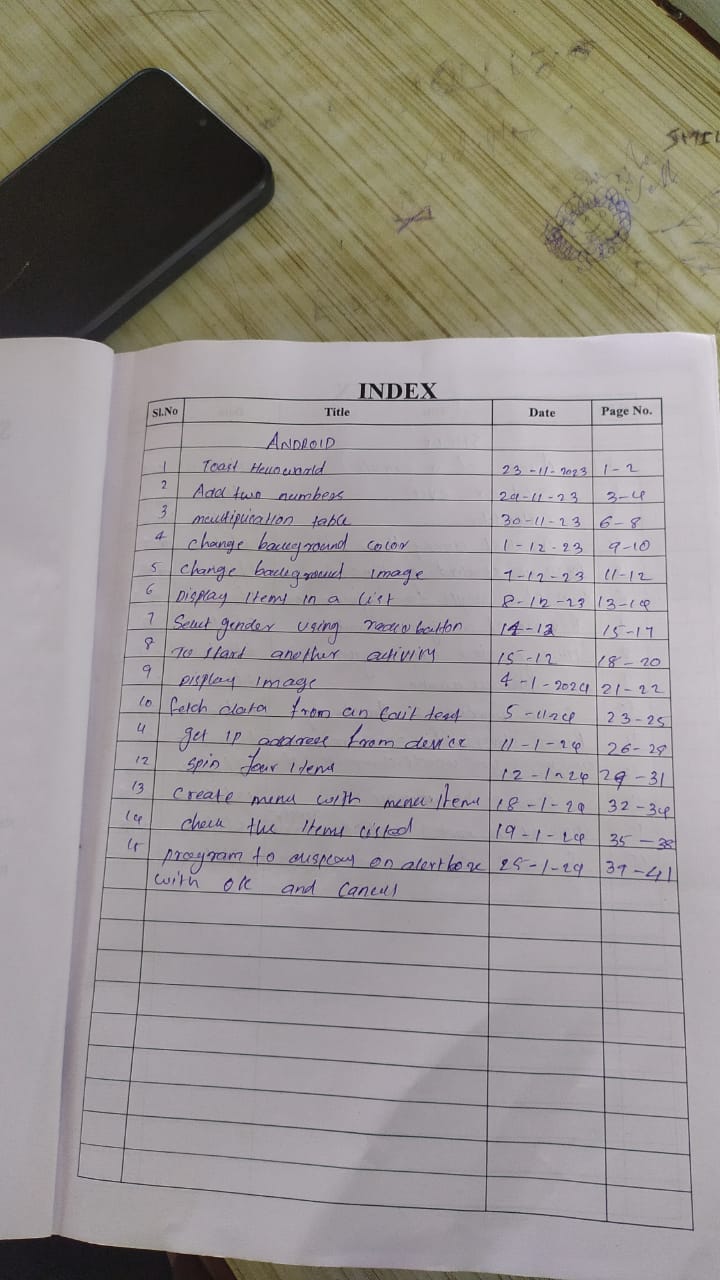 SMIL
INDEX
Sl.No Title Date Page No.
ANDROID
1 Toast Helloworld 23-11-2023 1-2
2 Add two numbers 29-11-23 3-4
3 multiplication table 30-11-23 6-8
4 change background color 1-12-23 9-10
5 change background image 7-12-23 11-12
6 Display Items in a list 8-12-23 13-14
7 Select gender using radio button 14-12 15-17
8 To start another activity 15-12 18-20
9 Display image 4-1-2024 21-22
10 fetch data from an Edit text 23-25
11 get IP address from device 11-1-24 26-28
12 spin four items 29-31
13 Create menu with menu items 18-1-24 32-34
14 check the Items listed 19-1-24 35-38
15 program to display an alertbox 25-1-24 39-41
with OK and Cancel